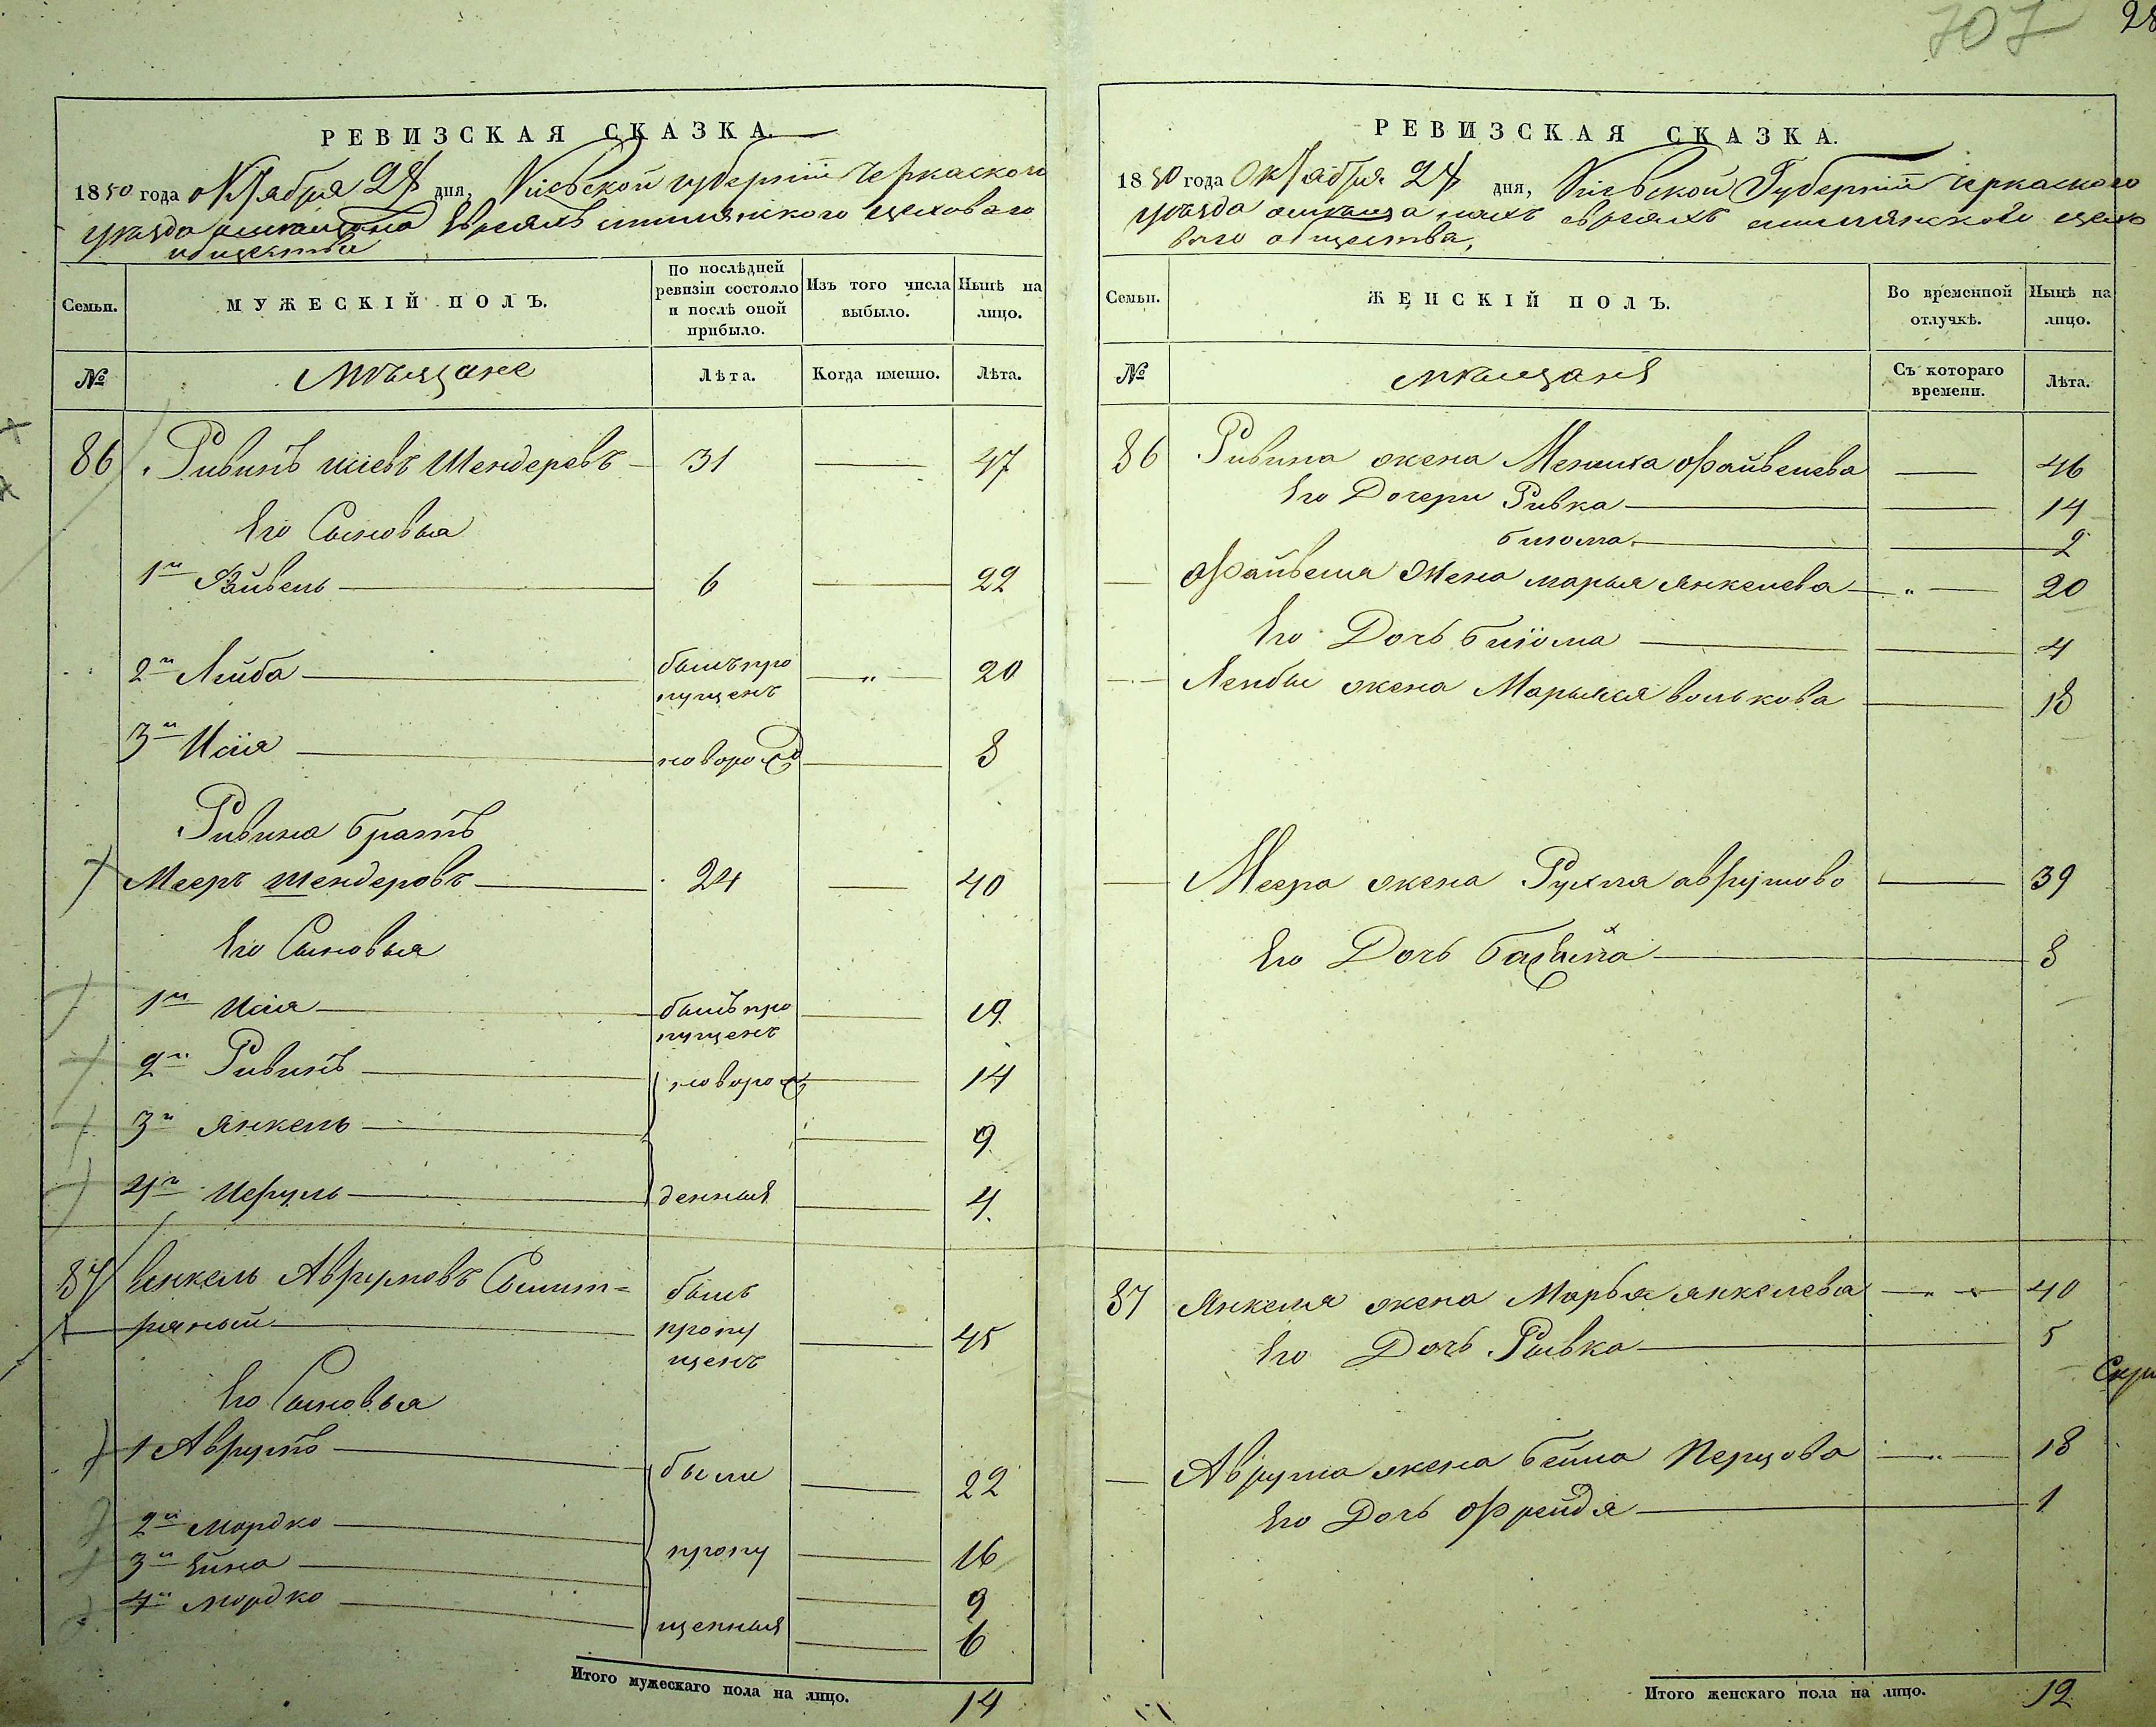 707
28
РЕВИЗСКАЯ СКАЗКА.
1850 года октября 24 дня, Киевской губерніи Черкаского
уѣзда евреяхъ цеховаго
общества
Семьи.
МУЖЕСКІЙ ПОЛЪ.
По послѣдней ревизіи состояло и послѣ оной прибыло.
Изъ того числа выбыло.
Нынѣ на лицо.
№
Мѣщане
Лѣта.
Когда именно.
Лѣта.
86 Ривинъ Шендеревъ 31 47
Его Сыновья
1й Файвель 6 22
2й Лейба былъ про 20
пущенъ
3й новорожд 8
Ривина братъ
Мееръ шендеровъ 24 40
Его Сыновья
1й былъ про 19
пущенъ
2й Ривинъ новорож 14
3й Янкель 9
4й денныя 4
87 Янкель Аврумовъ былъ
пропу 45
щенъ
Его Сыновья
1 Аврумъ были 22
2й Мордко пропу 16
3й 9
4й Мордко щенныя 6
Итого мужескаго пола на лицо. 14
РЕВИЗСКАЯ СКАЗКА.
1850 года Октября 24 дня, Киевской Губерніи Черкаского
уѣзда евреяхъ цехо
ваго общества,
Семьи.
ЖЕНСКІЙ ПОЛЪ.
Во временной отлучкѣ.
Нынѣ на лицо.
№
Мѣщане
Съ котораго времени.
Лѣта.
86 Ривина жена Файвелева 46
Его Дочери Ривка 14
Блюма 2
Файвеля Жена марья янкелева 20
Его Дочь блюма 4
Лейбы жена волькова 18
Меера жена Рухля аврумова 39
Его Дочь 8
87 Янкеля жена Марья янкелева 40
Его Дочь Рывка 5
Скрѣ
Аврума жена бейла Перцова 18
Его Дочь Фрейда 1
Итого женскаго пола на лицо. 12